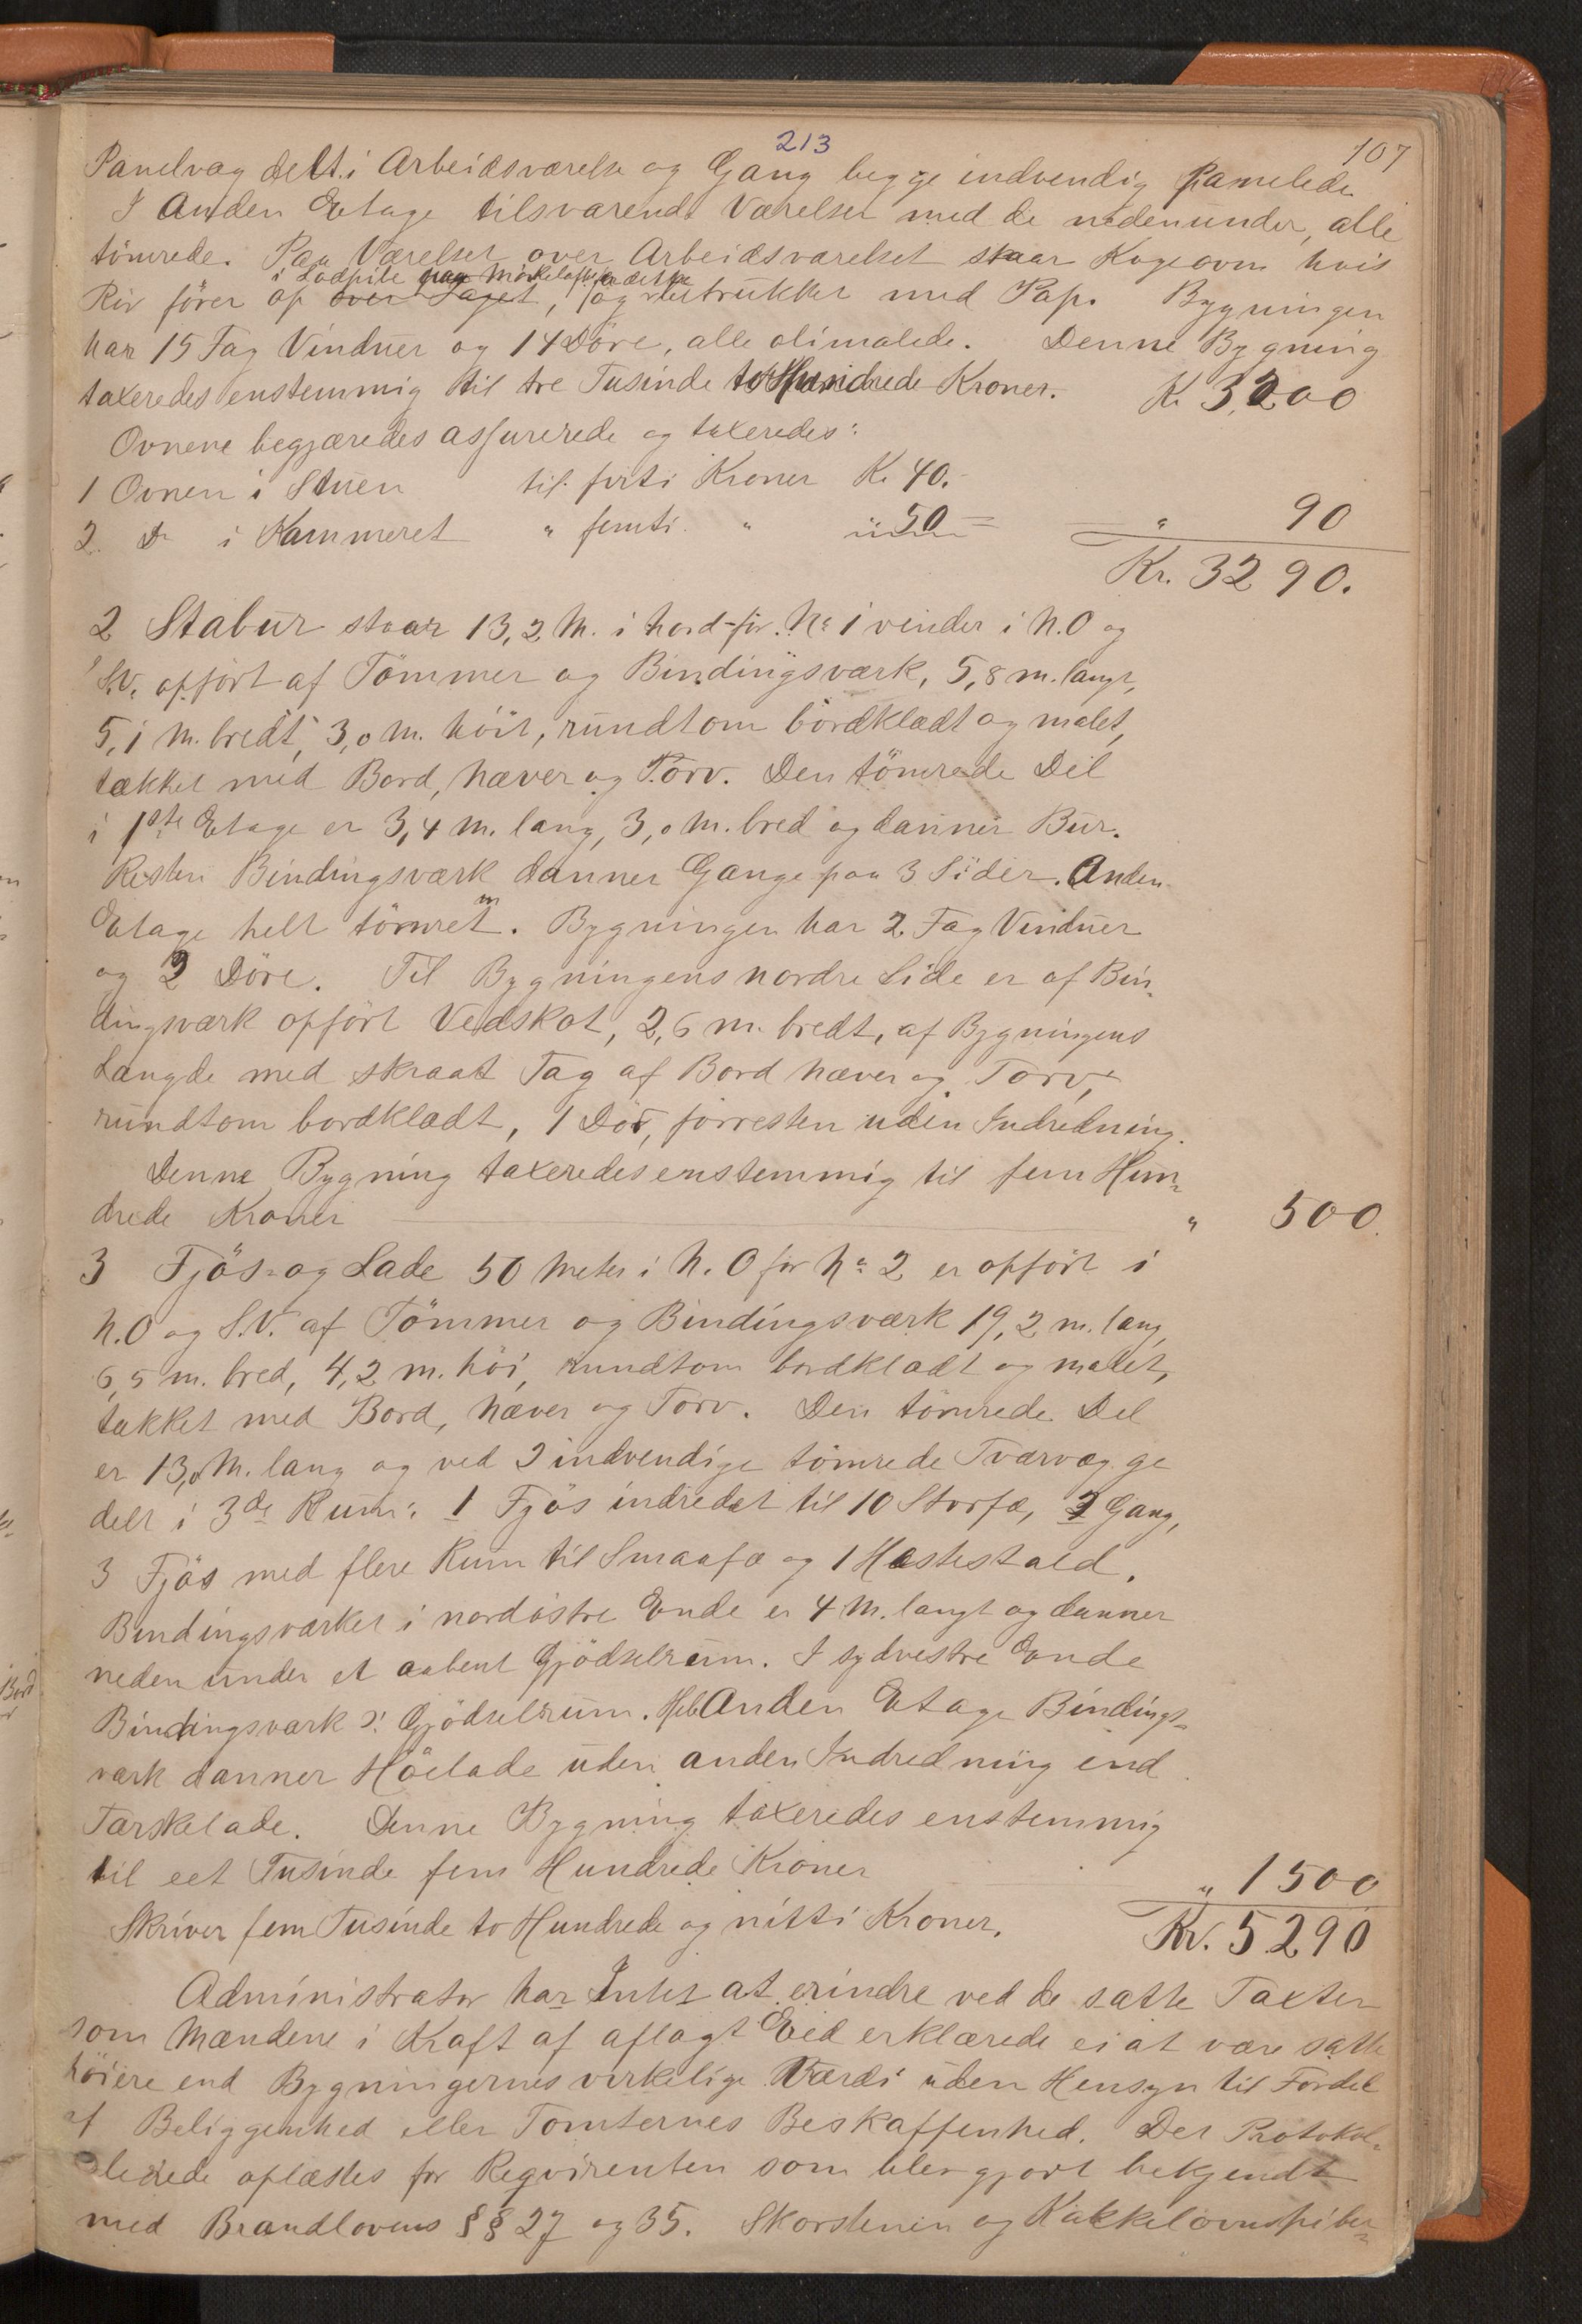 213
107
Panelvæg delt i Arbeidsværelse og Gang begge indvendig panelede
I Anden Etage tilsvarende Værelser med de nedenunder, alle
tömrede. Paa Værelset over Arbeidsværelset staar Kogeovn hvis
i Lodpibe paa Mörkeloftet
Rör förer op over Taget, og betrukket med Pap. Bygningen
har 15 Fag Vinduer og 14 Döre, alle oliemalede. Denne Bygning
taxeredes enstemmig til tre Tusinde to Hundrede Kroner. Kr 3,200
Ovnene begjæredes assurerede og taxeredes:
1 Ovnen i Stuen til forti Kroner Kr 40.
2. Do i Kammeret " femti " " 50 = " 90
Kr. 3290.
2 Stabur staar 13,2 M. i Nord for No 1 vender i N.O og
S.V. opfört af Tömmer og Bindingsværk, 5,8 m. langt,
5,1 M. bredt, 3,0 M. höit, rundtom bordklædt og malet,
tækket med Bord, Næver og Torv. Den tömrede Del
i 1ste Etage er 3,4 M. lang, 3,0 M. bred og danner Bur.
Resten Bindingsværk danner Gange paa 3 Sider. Anden
Etage helt tömret. Bygningen har 2 Fag Vinduer
og 2 Döre. Til Bygningens nordre Side er af Bin-
dingsværk opfört Vedskot, 2,6 m. bredt, af Bygningens
Længde med skraat Tag af Bord Næver og Torv,
rundtom bordklædt, 1 Dör, forresten uden Indredning.
Denne Bygning taxeredes enstemmig til fem Hun-
drede Kroner " 500.
3 Fjös- og Lade 50 Meter i N.O for No 2 er opfört i
N.O og S.V. af Tömmer og Bindingsværk 19,2 m. lang,
6,5 m. bred, 4,2 m. höi, rundtom bordklædt og malet,
tækket med Bord, Næver og Torv. Den tömrede Del
er 13,0 M. lang og ved 2 indvendige tömrede Tværvægge
delt i 3de Rum: 1 Fjös indredet til 10 Storfæ, 2 Gang,
3 Fjös med flere Rum til Smaafæ og 1 Hestestald.
Bindingsværket i nordöstre Ende er 4 M. langt og danner
neden under et aabent Gjödselrum. I sydvestre Ende
Bindingsværk Gjödselrum. Hele Anden Etage Bindings-
værk danner Höelade uden anden Indredning end
Tærskelade. Denne Bygning taxeredes enstemmig
til eet Tusinde fem Hundrede Kroner " 1500
Skriver fem Tusinde to Hundrede og nitti Kroner. Kr. 5290
Administrator har Intet at erindre ved de satte Taxter
som Mændene i Kraft af aflagt Eed erklærede ei at være satte
höiere end Bygningernes virkelige Værdi uden Hensyn til Fordel
af Beliggenhed eller Tomternes Beskaffenhed. Det Protokol-
lerede oplæstes for Reqvirenten som blev gjort bekjendt
med Brandlovens §§ 27 og 35. Skorstenen og Kakkelovnspiber-